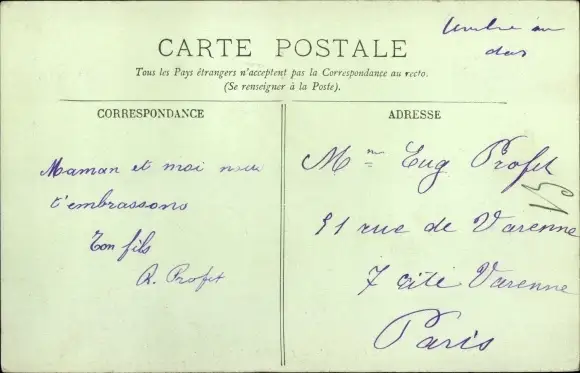 Timbre au
dos
CARTE POSTALE
Tous les Pays étrangers n'acceptent pas la Correspondance au recto.
(Se renseigner à la Poste).
CORRESPONDANCE
Maman et moi nous
t'embrassons
Ton fils
R. Profit
ADRESSE
Eug Profit
51 rue de Varenne
7 cité Varenne
Paris